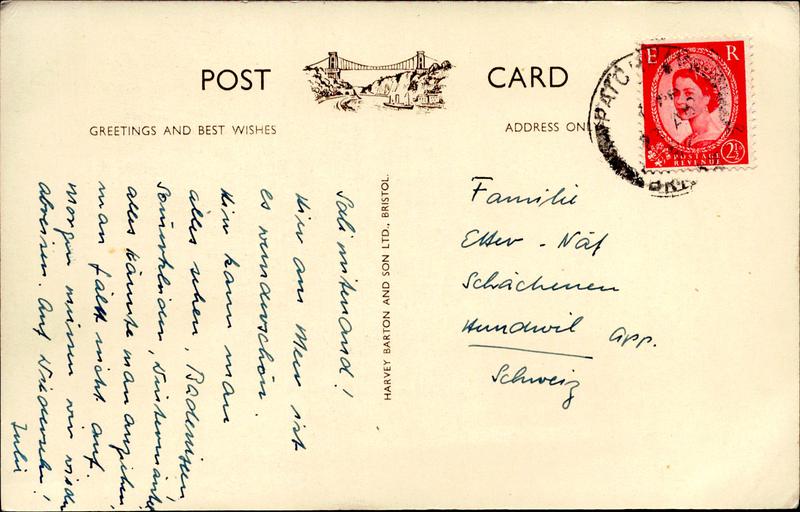 POST CARD
GREETINGS AND BEST WISHES
ADDRESS ONL
E R
POSTAGE
REVENUE
2½
PATC
BRI
HARVEY BARTON AND SON LTD., BRISTOL.
Sali mitenand!
Hier am Meer ist
es wunderschön.
Hier kann man
alles sehen, Badenixen,
Sommerkleider, Wintermäntel
alles könnte man anziehen,
man fällt nicht auf.
Morgen müssen wir wieder
abreisen. Auf Wiedersehn!
Familie
- Näf
Schächenen
Hundwil App.
Schweiz